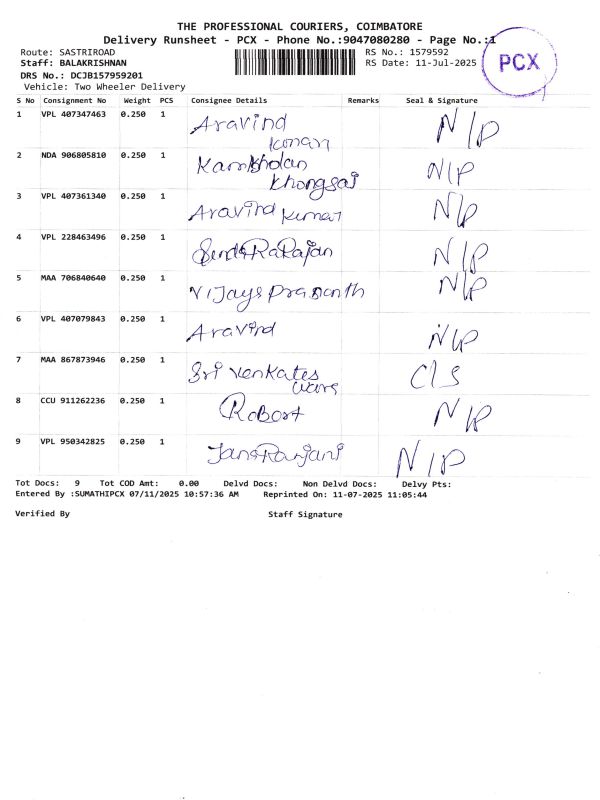 THE PROFESSIONAL COURIERS, COIMBATORE
Delivery Runsheet - PCX - Phone No.:9047080280 - Page No.:1
Route: SASTRIROAD RS No.: 1579592
Staff: BALAKRISHNAN RS Date: 11-Jul-2025
PCX
DRS No.: DCJB157959201
Vehicle: Two Wheeler Delivery
S No Consignment No Weight PCS Consignee Details Remarks Seal & Signature
1 VPL 407347463 0.250 1 Aravind N/P
2 NDA 906805810 0.250 1 N/P
Khongsai
3 VPL 407361340 0.250 1 Aravind Kumar N/P
4 VPL 228463496 0.250 1 N/P
5 MAA 706840640 0.250 1 Vijays Prasanth N/P
6 VPL 407079843 0.250 1 Aravind N/P
7 MAA 867873946 0.250 1 Sri Venkates C/S
wara
8 CCU 911262236 0.250 1 Robert N/P
9 VPL 950342825 0.250 1 N/P
Tot Docs: 9 Tot COD Amt: 0.00 Delvd Docs: Non Delvd Docs: Delvy Pts:
Entered By :SUMATHIPCX 07/11/2025 10:57:36 AM Reprinted On: 11-07-2025 11:05:44
Verified By Staff Signature